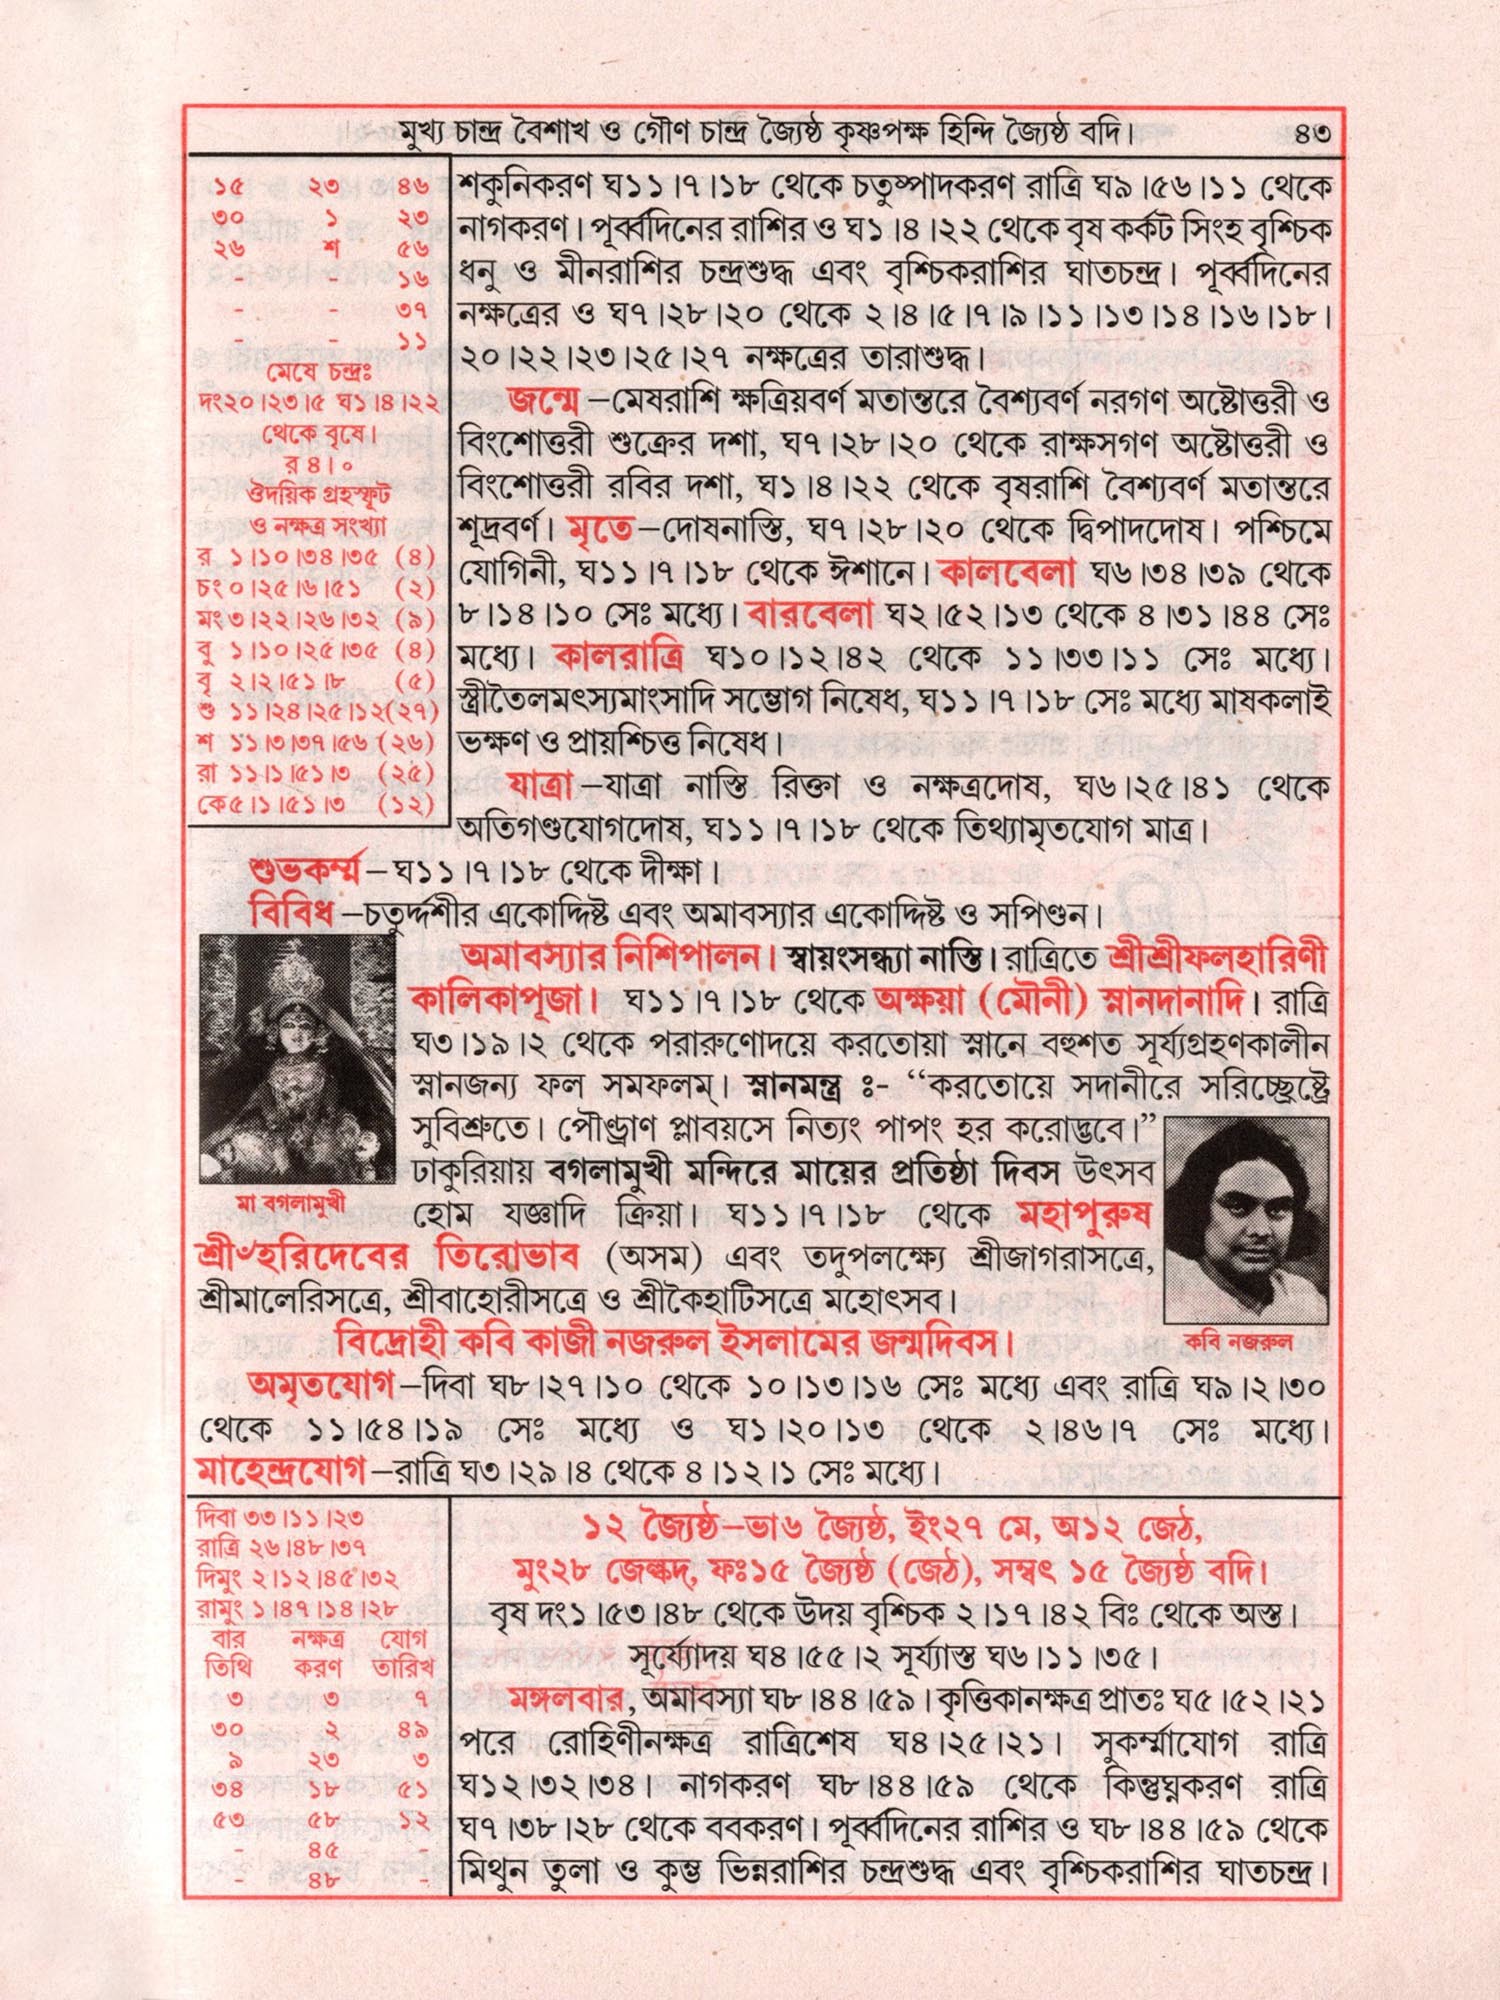 মুখ্য চান্দ্র বৈশাখ ও গৌণ চান্দ্র জ্যৈষ্ঠ কৃষ্ণপক্ষ হিন্দি জ্যৈষ্ঠ বদি। ৪৩
১৫ ২৩ ৪৬
৩০ ১ ২৩
২৬ শ ৫৬
- - ১৬
- - ৩৭
- - ১১
মেষে চন্দ্রঃ
দং২০।২৩।৫ ঘ১।৪।২২
থেকে বৃষে।
র ৪।০
ঔদয়িক গ্রহস্ফূট
ও নক্ষত্র সংখ্যা
র ১।১০।৩৪।৩৫ (৪)
চং ০।২৫।৬।৫১ (২)
মং ৩।২২।২৬।৩২ (৯)
বু ১।১০।২৫।৩৫ (৪)
বৃ ২।২।৫১।৮ (৫)
শু ১১।২৪।২৫।১২(২৭)
শ ১১।৩।৩৭।৫৬ (২৬)
রা ১১।১।৫১।৩ (২৫)
কে৫।১।৫১।৩ (১২)
শকুনিকরণ ঘ১১।৭।১৮ থেকে চতুষ্পাদকরণ রাত্রি ঘ৯।৫৬।১১ থেকে
নাগকরণ। পূর্ব্বদিনের রাশির ও ঘ১।৪।২২ থেকে বৃষ কর্কট সিংহ বৃশ্চিক
ধনু ও মীনরাশির চন্দ্রশুদ্ধ এবং বৃশ্চিকরাশির ঘাতচন্দ্র। পূর্ব্বদিনের
নক্ষত্রের ও ঘ৭।২৮।২০ থেকে ২।৪।৫।৭।৯।১১।১৩।১৪।১৬।১৮।
২০।২২।২৩।২৫।২৭ নক্ষত্রের তারাশুদ্ধ।
জন্মে –মেষরাশি ক্ষত্রিয়বর্ণ মতান্তরে বৈশ্যবর্ণ নরগণ অষ্টোত্তরী ও
বিংশোত্তরী শুক্রের দশা, ঘ৭।২৮।২০ থেকে রাক্ষসগণ অষ্টোত্তরী ও
বিংশোত্তরী রবির দশা, ঘ১।৪।২২ থেকে বৃষরাশি বৈশ্যবর্ণ মতান্তরে
শূদ্রবর্ণ। মৃতে –দোষনাস্তি, ঘ৭।২৮।২০ থেকে দ্বিপাদদোষ। পশ্চিমে
যোগিনী, ঘ১১।৭।১৮ থেকে ঈশানে। কালবেলা ঘ৬।৩৪।৩৯ থেকে
৮।১৪।১০ সেঃ মধ্যে। বারবেলা ঘ২।৫২।১৩ থেকে ৪।৩১।৪৪ সেঃ
মধ্যে। কালরাত্রি ঘ১০।১২।৪২ থেকে ১১।৩৩।১১ সেঃ মধ্যে।
স্ত্রীতৈলমৎস্যমাংসাদি সম্ভোগ নিষেধ, ঘ১১।৭।১৮ সেঃ মধ্যে মাষকলাই
ভক্ষণ ও প্রায়শ্চিত্ত নিষেধ।
যাত্রা –যাত্রা নাস্তি রিক্তা ও নক্ষত্রদোষ, ঘ৬।২৫।৪১ থেকে
অতিগণ্ডযোগদোষ, ঘ১১।৭।১৮ থেকে তিথ্যামৃতযোগ মাত্র।
শুভকর্ম্ম – ঘ১১।৭।১৮ থেকে দীক্ষা।
বিবিধ –চতুর্দ্দশীর একোদ্দিষ্ট এবং অমাবস্যার একোদ্দিষ্ট ও সপিণ্ডন।
অমাবস্যার নিশিপালন। স্বায়ংসন্ধ্যা নাস্তি। রাত্রিতে শ্রীশ্রীফলহারিণী
কালিকাপূজা। ঘ১১।৭।১৮ থেকে অক্ষয়া (মৌনী) স্নানদানাদি। রাত্রি
ঘ৩।১৯।২ থেকে পরারুণোদয়ে করতোয়া স্নানে বহুশত সূর্য্যগ্রহণকালীন
স্নানজন্য ফল সমফলম্। স্নানমন্ত্র ঃ- “করতোয়ে সদানীরে সরিচ্ছ্রেষ্ট্রে
সুবিশ্রুতে। পৌণ্ড্রাণ প্লাবয়সে নিত্যং পাপং হর করোদ্ভবে।”
ঢাকুরিয়ায় বগলামুখী মন্দিরে মায়ের প্রতিষ্ঠা দিবস উৎসব
মা বগলামুখী
হোম যজ্ঞাদি ক্রিয়া। ঘ১১।৭।১৮ থেকে মহাপুরুষ
শ্রী৺হরিদেবের তিরোভাব (অসম) এবং তদুপলক্ষ্যে শ্রীজাগরাসত্রে,
শ্রীমালেরিসত্রে, শ্রীবাহোরীসত্রে ও শ্রীকৈহাটিসত্রে মহোৎসব।
বিদ্রোহী কবি কাজী নজরুল ইসলামের জন্মদিবস।
কবি নজরুল
অমৃতযোগ –দিবা ঘ৮।২৭।১০ থেকে ১০।১৩।১৬ সেঃ মধ্যে এবং রাত্রি ঘ৯।২।৩০
থেকে ১১।৫৪।১৯ সেঃ মধ্যে ও ঘ১।২০।১৩ থেকে ২।৪৬।৭ সেঃ মধ্যে।
মাহেন্দ্রযোগ –রাত্রি ঘ৩।২৯।৪ থেকে ৪।১২।১ সেঃ মধ্যে।
দিবা ৩৩।১১।২৩
রাত্রি ২৬।৪৮।৩৭
দিমুং ২।১২।৪৫।৩২
রামুং ১।৪৭।১৪।২৮
বার নক্ষত্র যোগ
তিথি করণ তারিখ
৩ ৩ ৭
৩০ ২ ৪৯
৯ ২৩ ৩
৩৪ ১৮ ৫১
৫৩ ৫৮ ১২
- ৪৫ -
- ৪৮ -
১২ জ্যৈষ্ঠ–ভা৬ জ্যৈষ্ঠ, ইং২৭ মে, অ১২ জেঠ,
মুং২৮ জেল্কদ, ফঃ১৫ জ্যৈষ্ঠ (জেঠ), সম্বৎ ১৫ জ্যৈষ্ঠ বদি।
বৃষ দং১।৫৩।৪৮ থেকে উদয় বৃশ্চিক ২।১৭।৪২ বিঃ থেকে অস্ত।
সূর্য্যোদয় ঘ৪।৫৫।২ সূর্য্যাস্ত ঘ৬।১১।৩৫।
মঙ্গলবার, অমাবস্যা ঘ৮।৪৪।৫৯। কৃত্তিকানক্ষত্র প্রাতঃ ঘ৫।৫২।২১
পরে রোহিণীনক্ষত্র রাত্রিশেষ ঘ৪।২৫।২১। সুকর্ম্মাযোগ রাত্রি
ঘ১২।৩২।৩৪। নাগকরণ ঘ৮।৪৪।৫৯ থেকে কিন্তুঘ্নকরণ রাত্রি
ঘ৭।৩৮।২৮ থেকে ববকরণ। পূর্ব্বদিনের রাশির ও ঘ৮।৪৪।৫৯ থেকে
মিথুন তুলা ও কুম্ভ ভিন্নরাশির চন্দ্রশুদ্ধ এবং বৃশ্চিকরাশির ঘাতচন্দ্র।